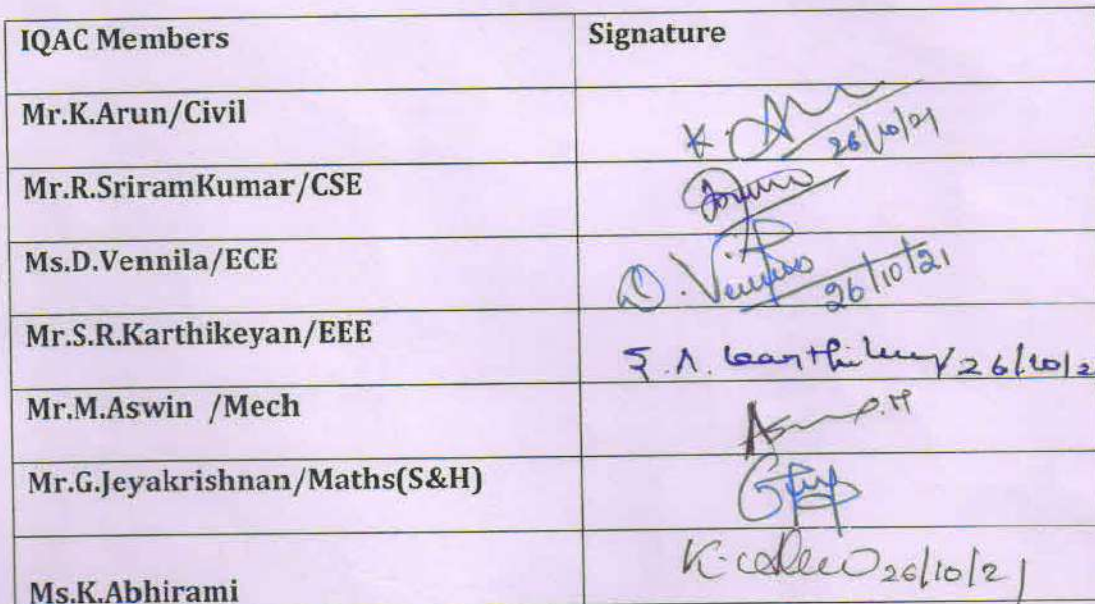 IQAC Members Signature
Mr.K.Arun/Civil K. 26/10/21
Mr.R.SriramKumar/CSE
Ms.D.Vennila/ECE D. 26/10/21
Mr.S.R.Karthikeyan/EEE 26/10/2
Mr.M.Aswin /Mech
Mr.G.Jeyakrishnan/Maths(S&H)
Ms.K.Abhirami K. 26/10/21